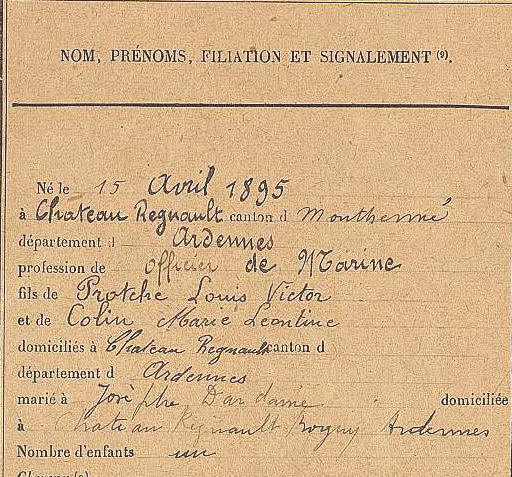 NOM, PRÉNOMS, FILIATION ET SIGNALEMENT (9).
Né le 15 Avril 1895
à Chateau Regnault canton d Monthermé
département d Ardennes
profession de officier de Marine
fils de Protche Louis Victor
et de Colin Marie Leontine
domiciliés à Chateau Regnault canton d
département d Ardennes
marié à Josèphe Dardame domiciliée
à Chateau Regnault Bogny Ardennes
Nombre d'enfants un